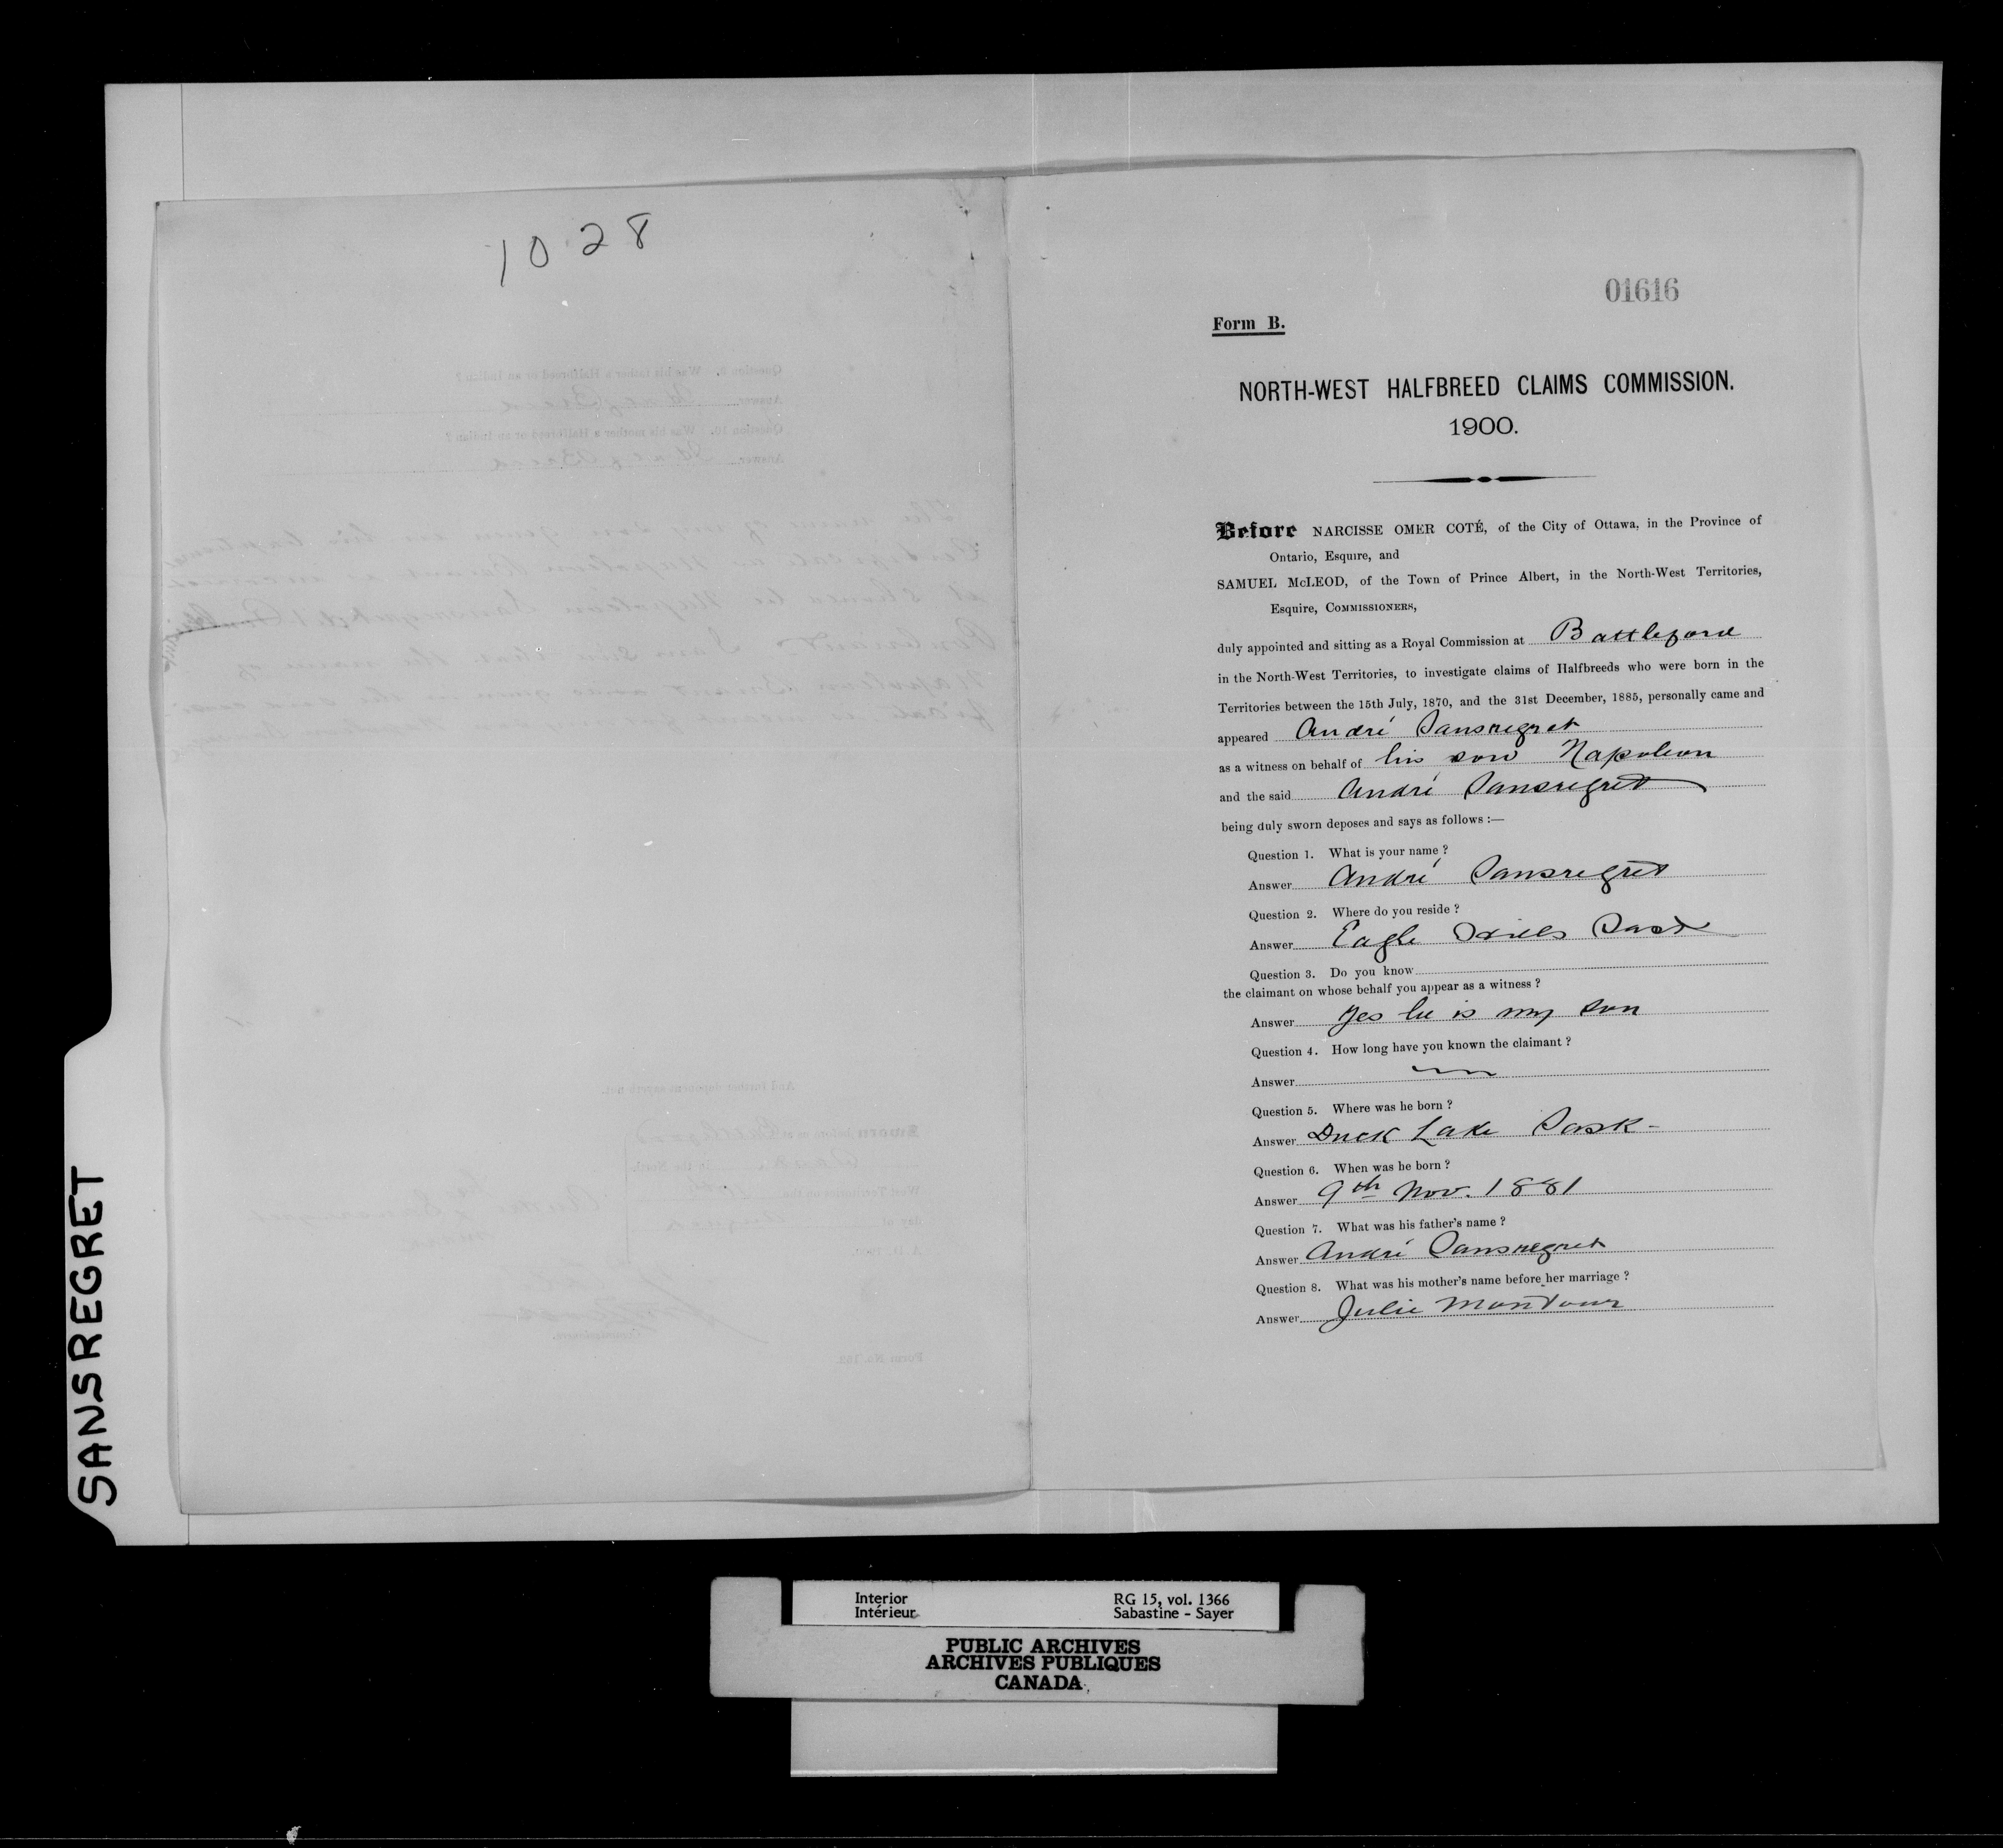 1028
01616
Form B.
NORTH-WEST HALFBREED CLAIMS COMMISSION.
1900.
Before NARCISSE OMER COTÉ, of the City of Ottawa, in the Province of
Ontario, Esquire, and
SAMUEL McLEOD, of the Town of Prince Albert, in the North-West Territories,
Esquire, COMMISSIONERS,
duly appointed and sitting as a Royal Commission at Battleford
in the North-West Territories, to investigate claims of Halfbreeds who were born in the
Territories between the 15th July, 1870, and the 31st December, 1885, personally came and
appeared André Sansregret
as a witness on behalf of his son Napoleon
and the said André Sansregret
being duly sworn deposes and says as follows :—
Question 1. What is your name ?
Answer André Sansregret
Question 2. Where do you reside ?
Answer Eagle Hills Sask
Question 3. Do you know
the claimant on whose behalf you appear as a witness ?
Answer Yes he is my son
Question 4. How long have you known the claimant ?
Answer
Question 5. Where was he born ?
Answer Duck Lake Sask-
Question 6. When was he born ?
Answer 9th Nov. 1881
Question 7. What was his father's name ?
Answer André Sansregret
Question 8. What was his mother's name before her marriage ?
Answer Julie Montour
SANSREGRET
Interior
Intérieur
RG 15, vol. 1366
Sabastine - Sayer
PUBLIC ARCHIVES
ARCHIVES PUBLIQUES
CANADA